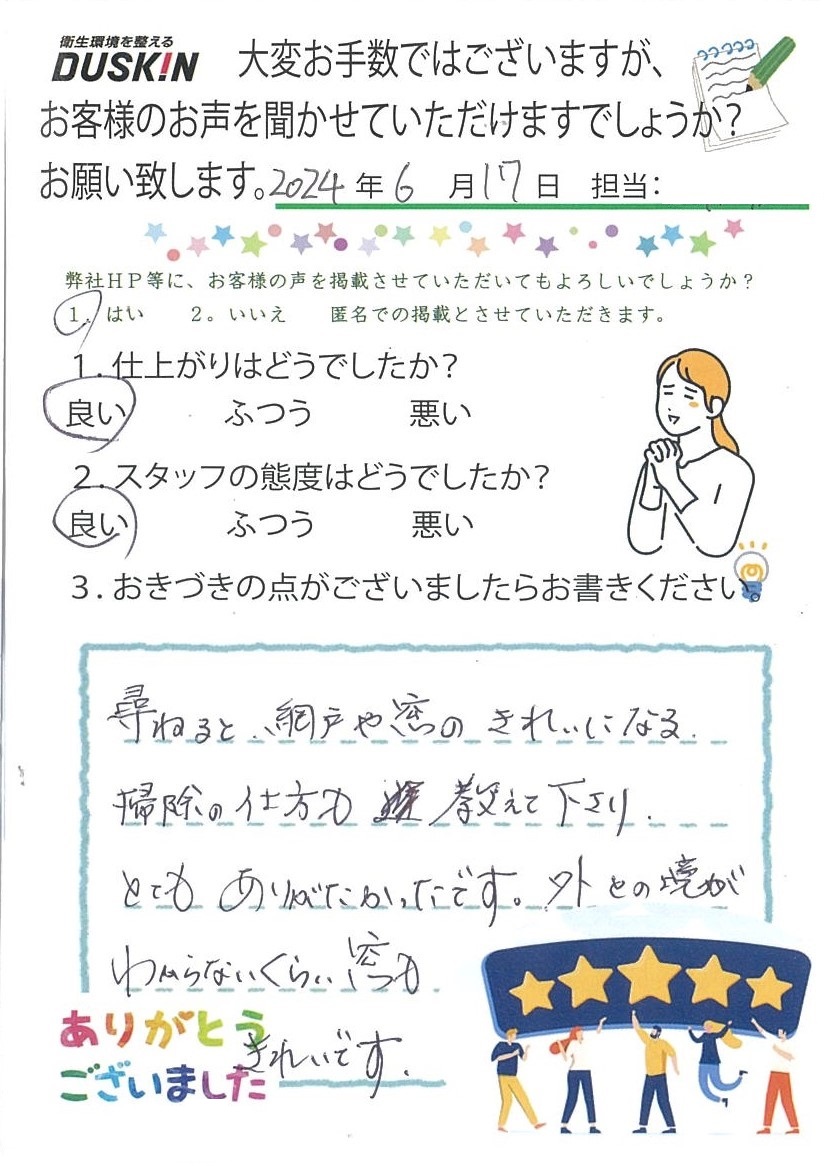 衛生環境を整える
DUSKIN
大変お手数ではございますが、
お客様のお声を聞かせていただけますでしょうか?
お願い致します。2024年6月17日 担当:
弊社HP等に、お客様の声を掲載させていただいてもよろしいでしょうか?
1. はい 2。いいえ 匿名での掲載とさせていただきます。
1.仕上がりはどうでしたか?
良い ふつう 悪い
2.スタッフの態度はどうでしたか?
良い ふつう 悪い
3.おきづきの点がございましたらお書きください。
尋ねると、網戸や窓の きれいになる
掃除の仕方も 教えて下さり、
とても ありがたかったです。外との境が
わからないくらい窓も
きれいです。
ありがとう
ございました